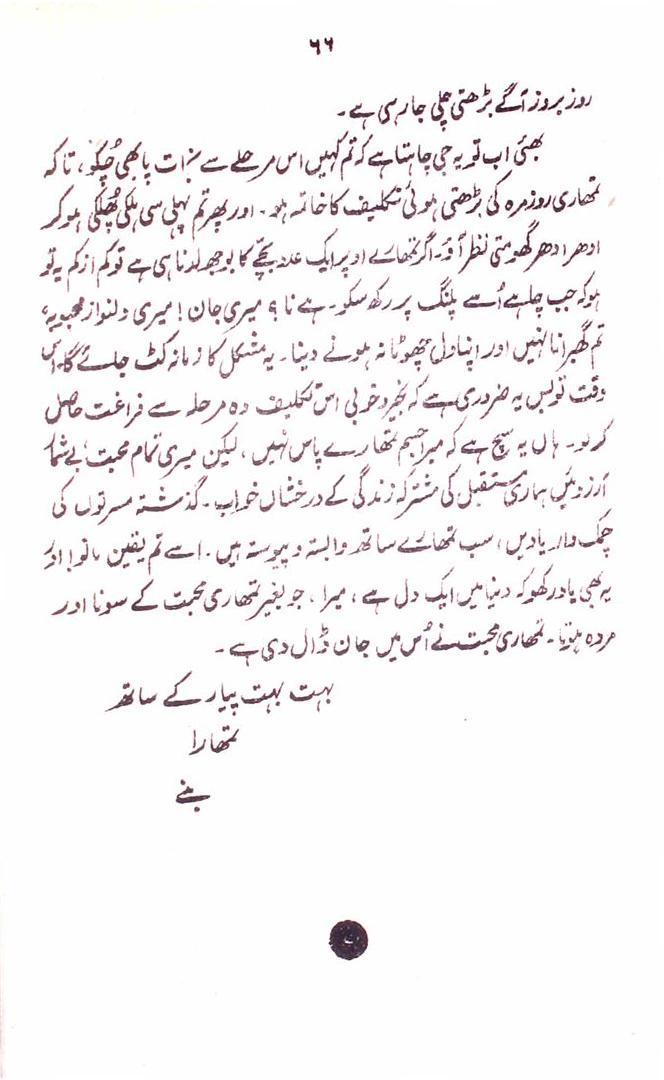 ۶۶
روز بروز آگے بڑھتی چلی جا رہی ہے۔
بھئی اب تو یہ جی چاہتا ہے کہ تم کہیں اس مرحلے سے نجات پا بھی چُکو، تاکہ
تمھاری روزمرہ کی بڑھتی ہوئی تکلیف کا خاتمہ ہو۔ اور پھر تم پہلی سی ہلکی پُھلکی ہو کر
ادھر ادھر گھومتی نظر آؤ۔ اگر تمھارے اوپر ایک عدد بچّے کا بوجھ لدنا ہی ہے تو کم از کم یہ تو
ہو کہ جب چاہے اُسے پلنگ پر رکھ سکو۔ ہے نا؟ میری جان! میری دلنواز محبوبہ،
تم گھبرانا نہیں اور اپنا دل چھوٹا نہ ہونے دینا۔ یہ مشکل کا زمانہ کٹ جائے گا۔ اس
وقت تو بس یہ ضروری ہے کہ بخیر و خوبی اس تکلیف دہ مرحلہ سے فراغت حاصل
کر لو۔ ہاں یہ سچ ہے کہ میرا جسم تمھارے پاس نہیں، لیکن میری تمام محبت، بے شمار
آرزوئیں ہماری مستقبل کی مشترکہ زندگی کے درخشاں خواب۔ گذشتہ مسرتوں کی
چمک دار یادیں، سب تمھارے ساتھ وابستہ و پیوستہ ہیں۔ اسے تم یقین مانو! اور
یہ بھی یاد رکھو کہ دنیا میں ایک دل ہے، میرا، جو بغیر تمھاری محبت کے سونا اور
مردہ ہوتا۔ تمھاری محبت نے اُس میں جان ڈال دی ہے۔
بہت بہت پیار کے ساتھ
تمھارا
بنے